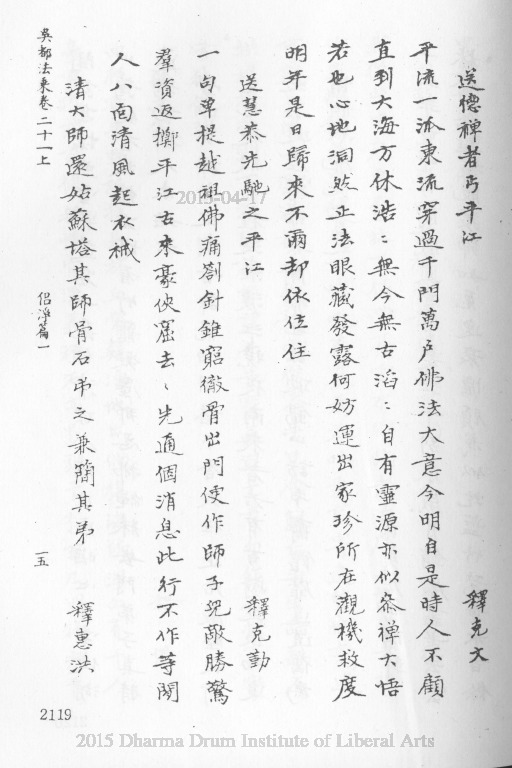 送德禪者丐平江　　　　　　　　釋克文
平流一派東流穿過千門萬户佛法大意今明自是時人不顧
直到大海方休浩〻無今無古滔〻自有靈源亦似叅禪大悟
若也心地洞然正法眼藏發露何妨運出家珍所在觀機救度
明年是日歸來不爾却依位住
送慧恭先馳之平江　　　　　　釋克勤
一句單提越祖佛痛劄針錐窮徹骨出門便作師子兒敵勝驚
羣資返擲平江古來豪俠窟去〻先通個消息此行不作等閑
人八面清風起衣裓
清大師還姑蘇塔其師骨石弔之兼簡其弟　　釋惠洪
吳都法乘卷二十一上
侶淨篇一
一五
2119
2015-04-17
2015 Dharma Drum Institute of Liberal Arts